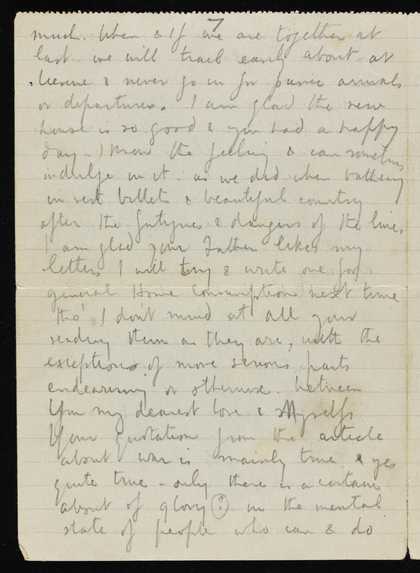 7
much. When & If we are together at
last we will travel easily about at
leisure & never go in for panic arrivals
or departures. I am glad the new
house is so good & you had a happy
day - I know the feeling & can sometimes
indulge in it. as we did when bathing
in rest billets & beautiful country
after the fatigues & dangers of the line.
I am glad your Father likes my
letters, I will try & write one for
general Home Consumption next time
tho' I don't mind at all your
reading them as they are, with the
exceptions of more serious parts
endearing or otherwise between
You my dearest love & Myself.
Your quotation from the article
about war is mainly true & yes
quite true - only there is a certain
about of glory (?) in the mental
state of people who can & do